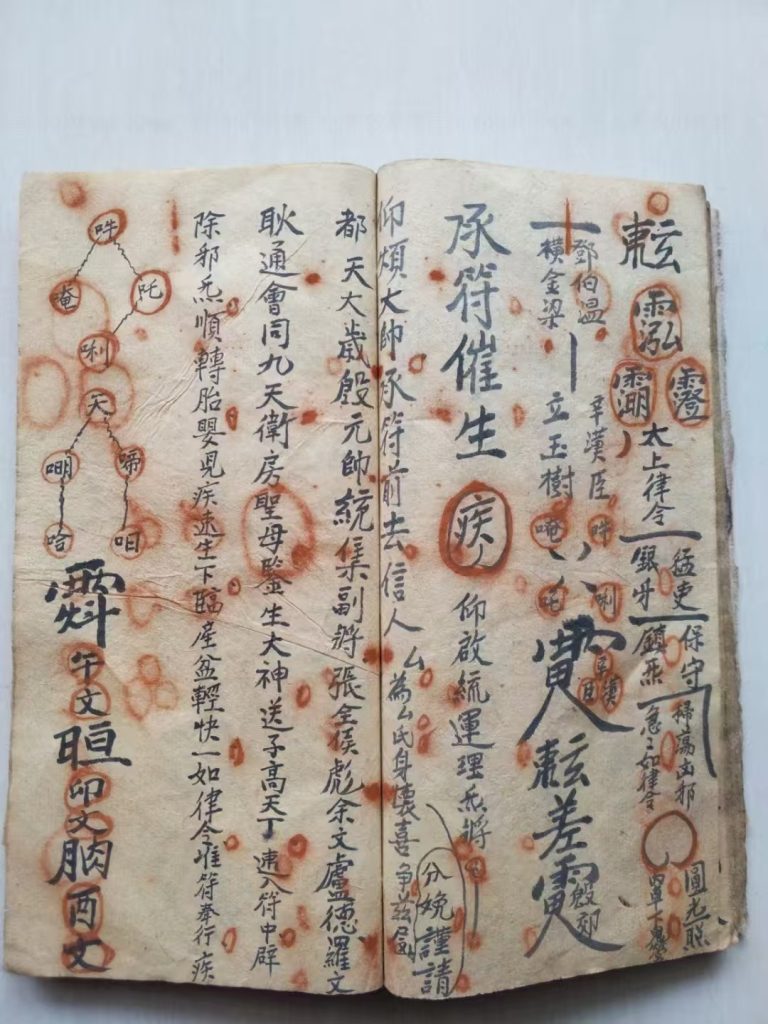 太上律令
猛吏
保守
銀牙
鎮
掃蕩
邪
急急如律令
圓光照
鄧伯温
橫金梁
辛漢臣
立玉樹
唵
吽
吒
唎
差
殷郊
承符催生
疾
仰啟統運理炁將
分娩謹請
仰煩大帥承符前去信人厶為厶氏身懷喜孕茲屆
都天大歲殷元帥統集副將張全侯彪余文盧德羅文
耿通會同九天衛房聖母監生大神送子高天丁速入符中辟
除邪炁順轉胎嬰兒疾速生下臨產盆輕快一如律令准符奉行疾
吽
唵
吒
唎
天
啼
哈
午文
卯文
酉文